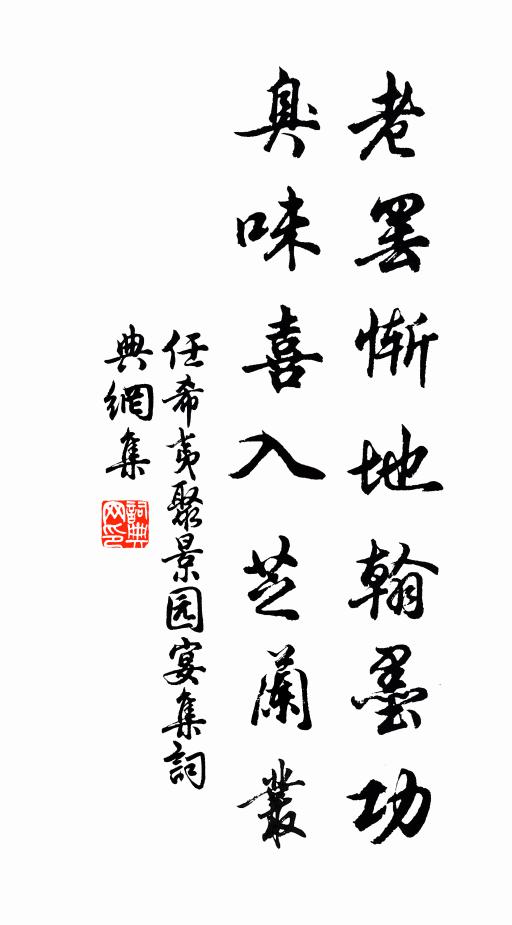 老罢惭地翰墨功
臭味喜入芝蘭叢
任希夷聚景园宴集詞
典網集
詞典网印